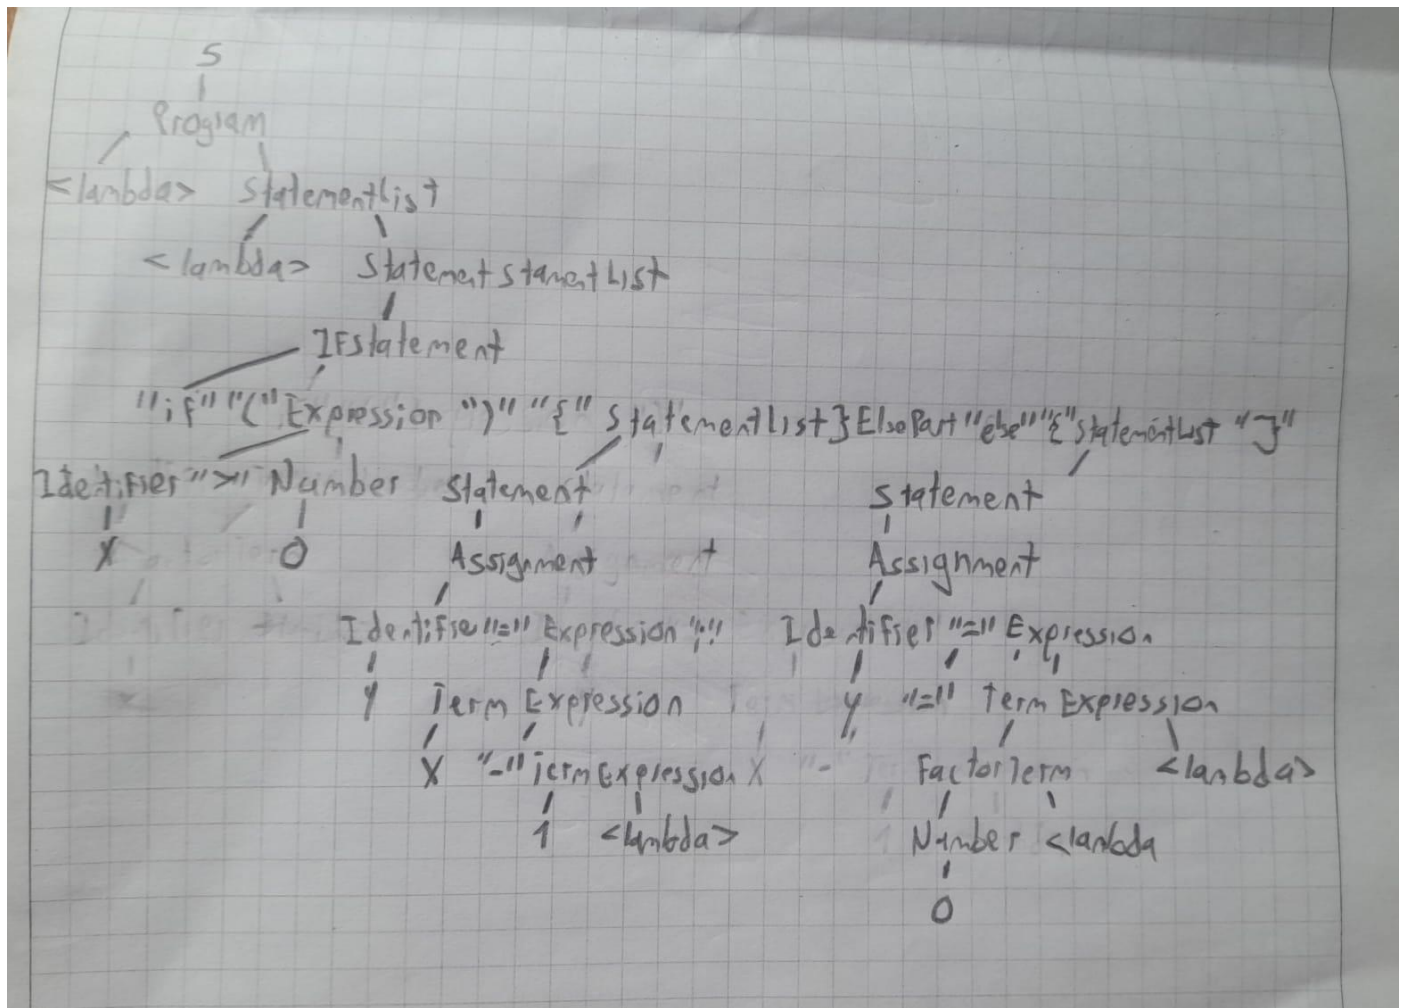 S
Program
<lambda> StatementList
<lambda> StatementStamentList
IFstatement
"if" "(" Expression ")" "{" StatementList } ElsePart "else" "{" StatementList "}"
Identifier ">" Number Statement Statement
X 0 Assignment Assignment
Identifie "=" Expression ";" Identifier "=" Expression
y Term Expression y "=" Term Expression
X "-" Term Expression X "-" FactorTerm <lambda>
1 <lambda> Number <lambda
0